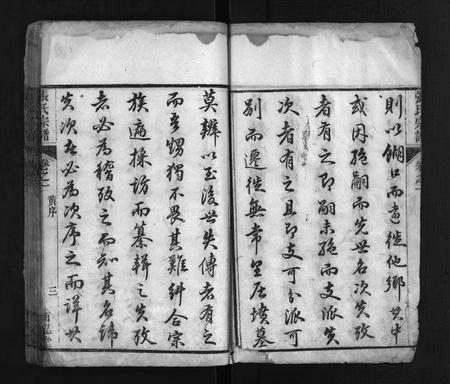 則以餬口而遠徙他鄉其中
或因絕嗣而先世名次失攷
者有之即嗣未絕而支派失
次者有之且即支可分派可
別而遷徙無常里居墳墓
莫辨以至後世失傳者有之
而吾甥獨不畏其難糾合宗
族遍採訪而纂輯之失攷
者必為稽攷之而知其名諱
失次者必為次序之而詳其
張氏宗譜 卷之一 黃序 三